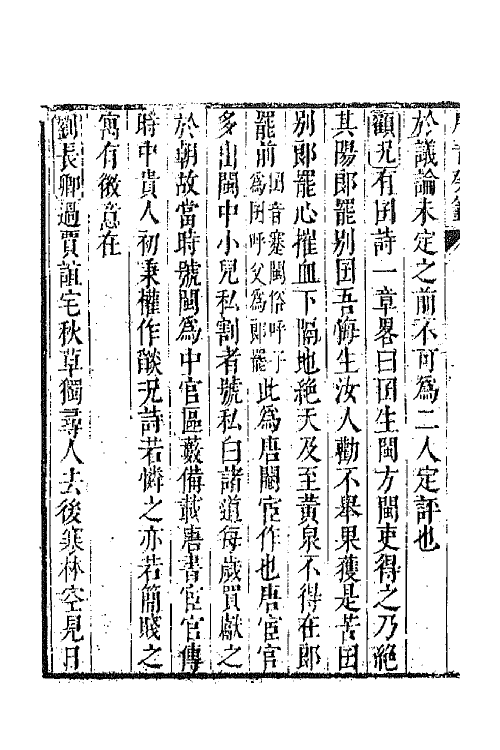 於議論未定之前不可爲二人定評也
顧況有囝詩一章畧曰囝生閩方閩吏得之乃絕
其陽郎罷别囝吾悔生汝人勸不舉果獲是苦囝
别郎罷心摧血下隔地絕天及至黃泉不得在郎
罷前囝音蹇閩俗呼子爲囝呼父爲郎罷此爲唐閹宦作也唐宦官
多出閩中小兒私割者號私白諸道每歲買獻之
於朝故當時號閩爲中官區藪備載唐書宦官傳
時中貴人初秉權作燄況詩若憐之亦若簡賤之
寓有微意在
劉長卿過賈誼宅秋草獨尋人去後寒林空見日